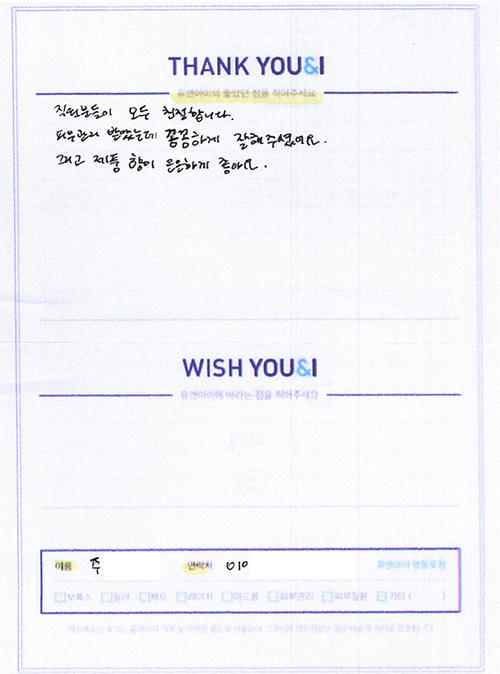 THANK YOU&I
유앤아이의 좋았던 점을 적어주세요
직원분들이 모두 친절합니다.
피부관리 받았는데 꼼꼼하게 잘해주셨어요.
그리고 제품 향이 은은하게 좋아요.
WISH YOU&I
유앤아이에 바라는 점을 적어주세요
이름 주 연락처 010 유앤아이 영등포점
보톡스 필러 제모 레이저 여드름 피부관리 피부질환 기타 ( )